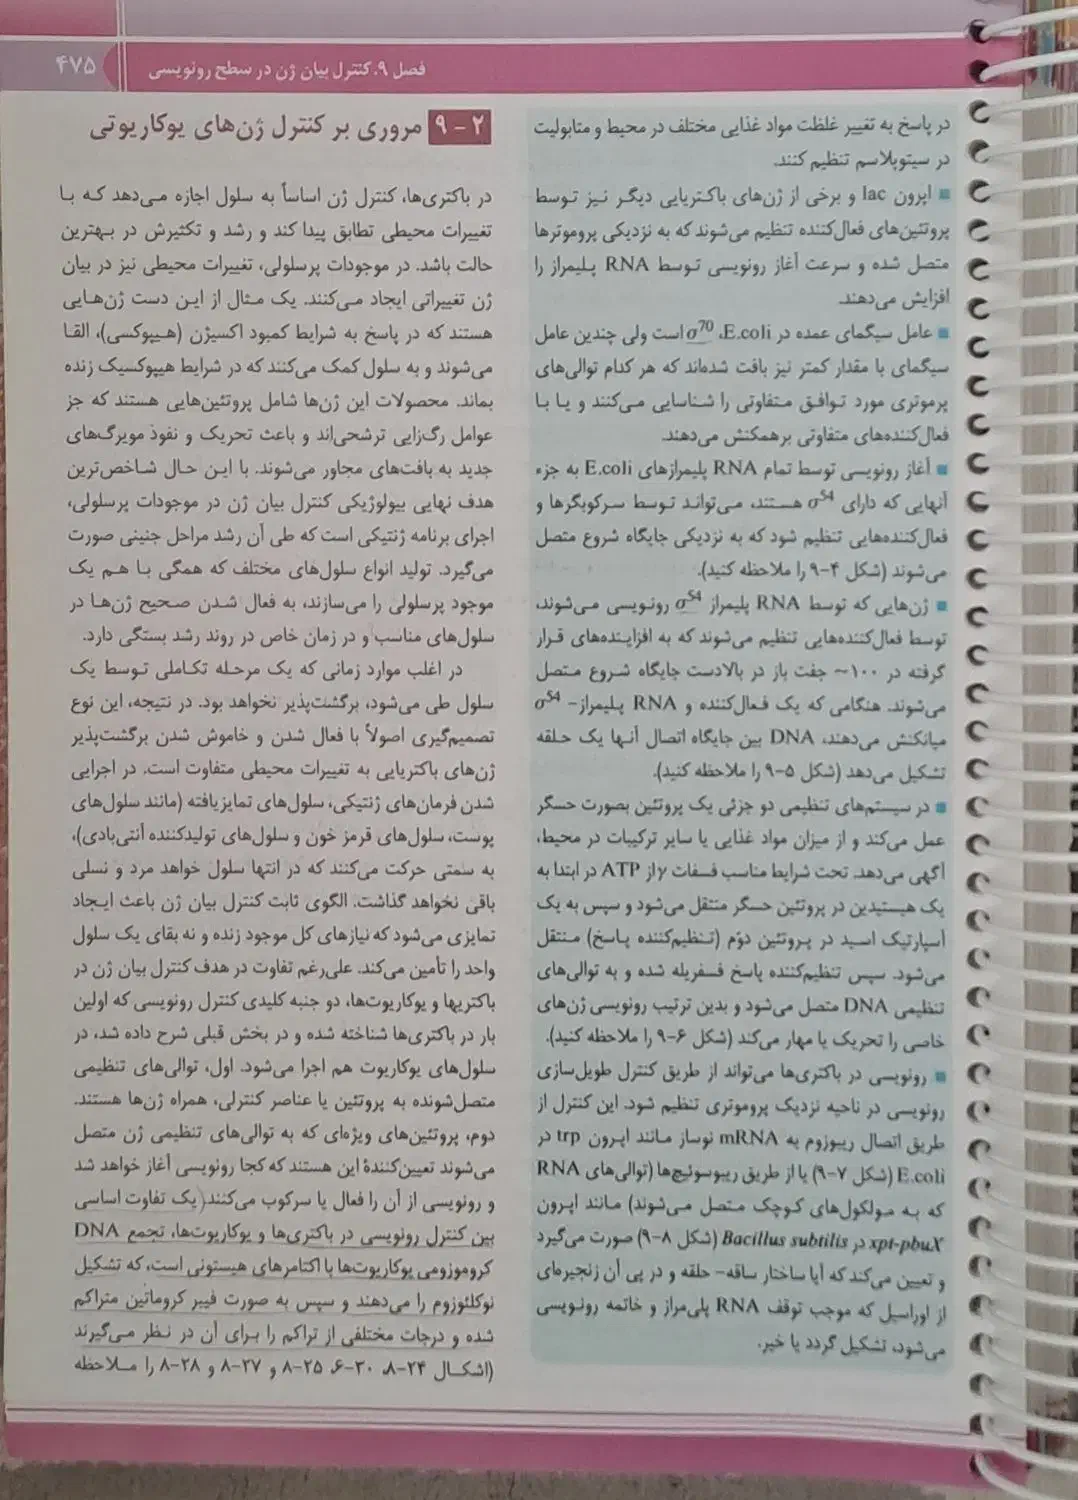 فصل ۹. کنترل بیان ژن در سطح رونویسی
۴۷۵
در پاسخ به تغییر غلظت مواد غذایی مختلف در محیط و متابولیت
در سیتوپلاسم تنظیم کنند.
■ اپرون lac و برخی از ژن‌های باکتریایی دیگر نیز توسط
پروتئین‌های فعال‌کننده تنظیم می‌شوند که به نزدیکی پروموترها
متصل شده و سرعت آغاز رونویسی توسط RNA پلیمراز را
افزایش می‌دهند.
■ عامل سیگمای عمده در E.coli، σ70 است ولی چندین عامل
سیگمای با مقدار کمتر نیز یافت شده‌اند که هر کدام توالی‌های
پرموتری مورد توافق متفاوتی را شناسایی می‌کنند و یا با
فعال‌کننده‌های متفاوتی برهمکنش می‌دهند.
■ آغاز رونویسی توسط تمام RNA پلیمرازهای E.coli به جزء
آنهایی که دارای σ54 هستند، می‌تواند توسط سرکوبگرها و
فعال‌کننده‌هایی تنظیم شود که به نزدیکی جایگاه شروع متصل
می‌شوند (شکل ۴-۹ را ملاحظه کنید).
■ ژن‌هایی که توسط RNA پلیمراز σ54 رونویسی می‌شوند،
توسط فعال‌کننده‌هایی تنظیم می‌شوند که به افزاینده‌های قرار
گرفته در ۱۰۰~ جفت باز در بالادست جایگاه شروع متصل
می‌شوند. هنگامی که یک فعال‌کننده و RNA پلیمراز- σ54
میانکنش می‌دهند، DNA بین جایگاه اتصال آنها یک حلقه
تشکیل می‌دهد (شکل ۵-۹ را ملاحظه کنید).
■ در سیستم‌های تنظیمی دو جزئی یک پروتئین بصورت حسگر
عمل می‌کند و از میزان مواد غذایی یا سایر ترکیبات در محیط،
آگهی می‌دهد. تحت شرایط مناسب فسفات γ از ATP در ابتدا به
یک هیستیدین در پروتئین حسگر منتقل می‌شود و سپس به یک
آسپارتیک اسید در پروتئین دوّم (تنظیم‌کننده پاسخ) منتقل
می‌شود. سپس تنظیم‌کننده پاسخ فسفریله شده و به توالی‌های
تنظیمی DNA متصل می‌شود و بدین ترتیب رونویسی ژن‌های
خاصی را تحریک یا مهار می‌کند (شکل ۶-۹ را ملاحظه کنید).
■ رونویسی در باکتری‌ها می‌تواند از طریق کنترل طویل‌سازی
رونویسی در ناحیه نزدیک پروموتری تنظیم شود. این کنترل از
طریق اتصال ریبوزوم به mRNA نوساز مانند اپرون trp در
E.coli (شکل ۷-۹) یا از طریق ریبوسوئیچ‌ها (توالی‌های RNA
که به مولکول‌های کوچک متصل می‌شوند) مانند اپرون
xpt-pbuX در Bacillus subtilis (شکل ۸-۹) صورت می‌گیرد
و تعیین می‌کند که آیا ساختار ساقه- حلقه و در پی آن زنجیره‌ای
از اوراسیل که موجب توقف RNA پلی‌مراز و خاتمه رونویسی
می‌شود، تشکیل گردد یا خیر.
۹-۲ مروری بر کنترل ژن‌های یوکاریوتی
در باکتری‌ها، کنترل ژن اساساً به سلول اجازه می‌دهد که با
تغییرات محیطی تطابق پیدا کند و رشد و تکثیرش در بهترین
حالت باشد. در موجودات پرسلولی، تغییرات محیطی نیز در بیان
ژن تغییراتی ایجاد می‌کنند. یک مثال از این دست ژن‌هایی
هستند که در پاسخ به شرایط کمبود اکسیژن (هیپوکسی)، القا
می‌شوند و به سلول کمک می‌کنند که در شرایط هیپوکسیک زنده
بماند. محصولات این ژن‌ها شامل پروتئین‌هایی هستند که جز
عوامل رگ‌زایی ترشحی‌اند و باعث تحریک و نفوذ مویرگ‌های
جدید به بافت‌های مجاور می‌شوند. با این حال شاخص‌ترین
هدف نهایی بیولوژیکی کنترل بیان ژن در موجودات پرسلولی،
اجرای برنامه ژنتیکی است که طی آن رشد مراحل جنینی صورت
می‌گیرد. تولید انواع سلول‌های مختلف که همگی با هم یک
موجود پرسلولی را می‌سازند، به فعال شدن صحیح ژن‌ها در
سلول‌های مناسب و در زمان خاص در روند رشد بستگی دارد.
در اغلب موارد زمانی که یک مرحله تکاملی توسط یک
سلول طی می‌شود، برگشت‌پذیر نخواهد بود. در نتیجه، این نوع
تصمیم‌گیری اصولاً با فعال شدن و خاموش شدن برگشت‌پذیر
ژن‌های باکتریایی به تغییرات محیطی متفاوت است. در اجرایی
شدن فرمان‌های ژنتیکی، سلول‌های تمایزیافته (مانند سلول‌های
پوست، سلول‌های قرمز خون و سلول‌های تولیدکننده آنتی‌بادی)،
به سمتی حرکت می‌کنند که در انتها سلول خواهد مرد و نسلی
باقی نخواهد گذاشت. الگوی ثابت کنترل بیان ژن باعث ایجاد
تمایزی می‌شود که نیازهای کل موجود زنده و نه بقای یک سلول
واحد را تأمین می‌کند. علی‌رغم تفاوت در هدف کنترل بیان ژن در
باکتریها و یوکاریوت‌ها، دو جنبه کلیدی کنترل رونویسی که اولین
بار در باکتری‌ها شناخته شده و در بخش قبلی شرح داده شد، در
سلول‌های یوکاریوت هم اجرا می‌شود. اول، توالی‌های تنظیمی
متصل‌شونده به پروتئین یا عناصر کنترلی، همراه ژن‌ها هستند.
دوم، پروتئین‌های ویژه‌ای که به توالی‌های تنظیمی ژن متصل
می‌شوند تعیین‌کنندهٔ این هستند که کجا رونویسی آغاز خواهد شد
و رونویسی از آن را فعال یا سرکوب می‌کنند. یک تفاوت اساسی
بین کنترل رونویسی در باکتری‌ها و یوکاریوت‌ها، تجمع DNA
کروموزومی یوکاریوت‌ها با اکتامرهای هیستونی است، که تشکیل
نوکلئوزوم را می‌دهند و سپس به صورت فیبر کروماتین متراکم
شده و درجات مختلفی از تراکم را برای آن در نظر می‌گیرند
(اشکال ۲۴-۸، ۳۰-۶، ۲۵-۸ و ۲۷-۸ و ۲۸-۸ را ملاحظه